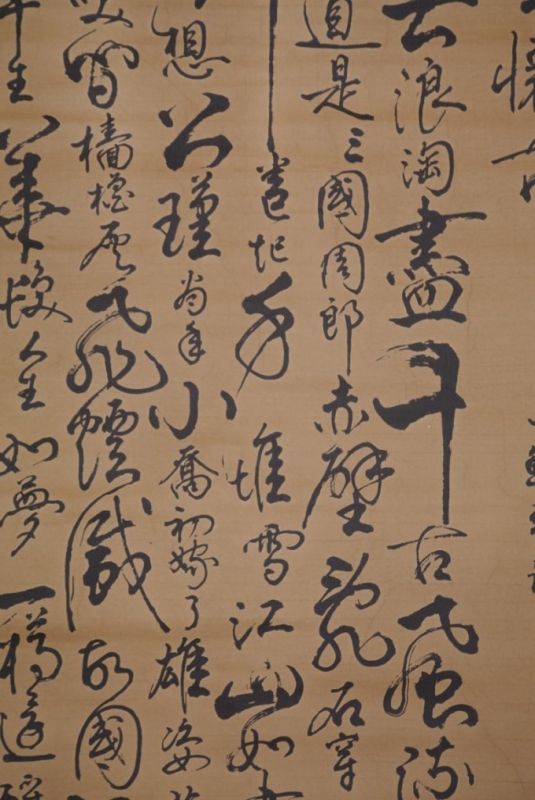 懷古
去浪淘盡千古風流
道是三國周郎赤壁亂石穿
卷起千堆雪江山如
想公瑾當年小喬初嫁了雄姿
笑間檣櫓灰飛煙滅故國
生華髮人生如夢一樽還酹